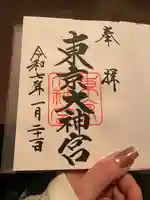 奉拝
東京大神宮
令和七年一月二十日